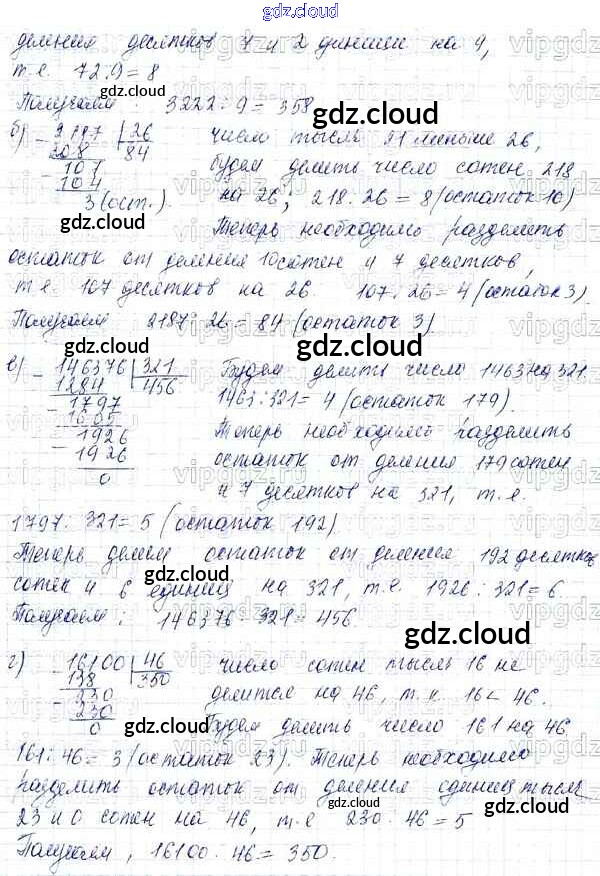 gdz.cloud
деления десятков 7 и 2 единиц на 9,
т.е. 72:9=8
Получаем: 3222:9=358
gdz.cloud
б) 2187 26 число тысяч 21 меньше 26,
208 84 будем делить число сотен 218
107 на 26, 218:26=8 (остаток 10)
104
3 (ост.)
gdz.cloud
gdz.cloud
Теперь необходимо разделить
остаток от деления 10 сотен и 7 десятков,
gdz.cloud
т.е. 107 десятков на 26. 107:26=4 (остаток 3).
Получаем 2187:26=84 (остаток 3)
gdz.cloud
в) 146376 321 Будем делить число 1463 на 321
1284 456 1463:321=4 (остаток 179).
1797 Теперь необходимо разделить
1605 остаток от деления 179 сотен
1926 и 7 десятков на 321, т.е.
1926
0
gdz.cloud
1797:321=5 (остаток 192).
Теперь делим остаток от деления 192 десятков
сотек и 6 единиц на 321, т.е. 1926:321=6.
gdz.cloud
Получаем: 146376:321=456.
gdz.cloud
г) 16100 46 число сотен тысяч 16 не
138 350 делится на 46, т.к. 16<46.
230 Будем делить число 161 на 46
230
0
gdz.cloud
gdz.cloud
161:46=3 (остаток 23). Теперь необходимо
разделить остаток от деления единиц тысяч
gdz.cloud
23 и 0 сотен на 46, т.е 230:46=5
Получаем, 16100:46=350.
gdz.cloud